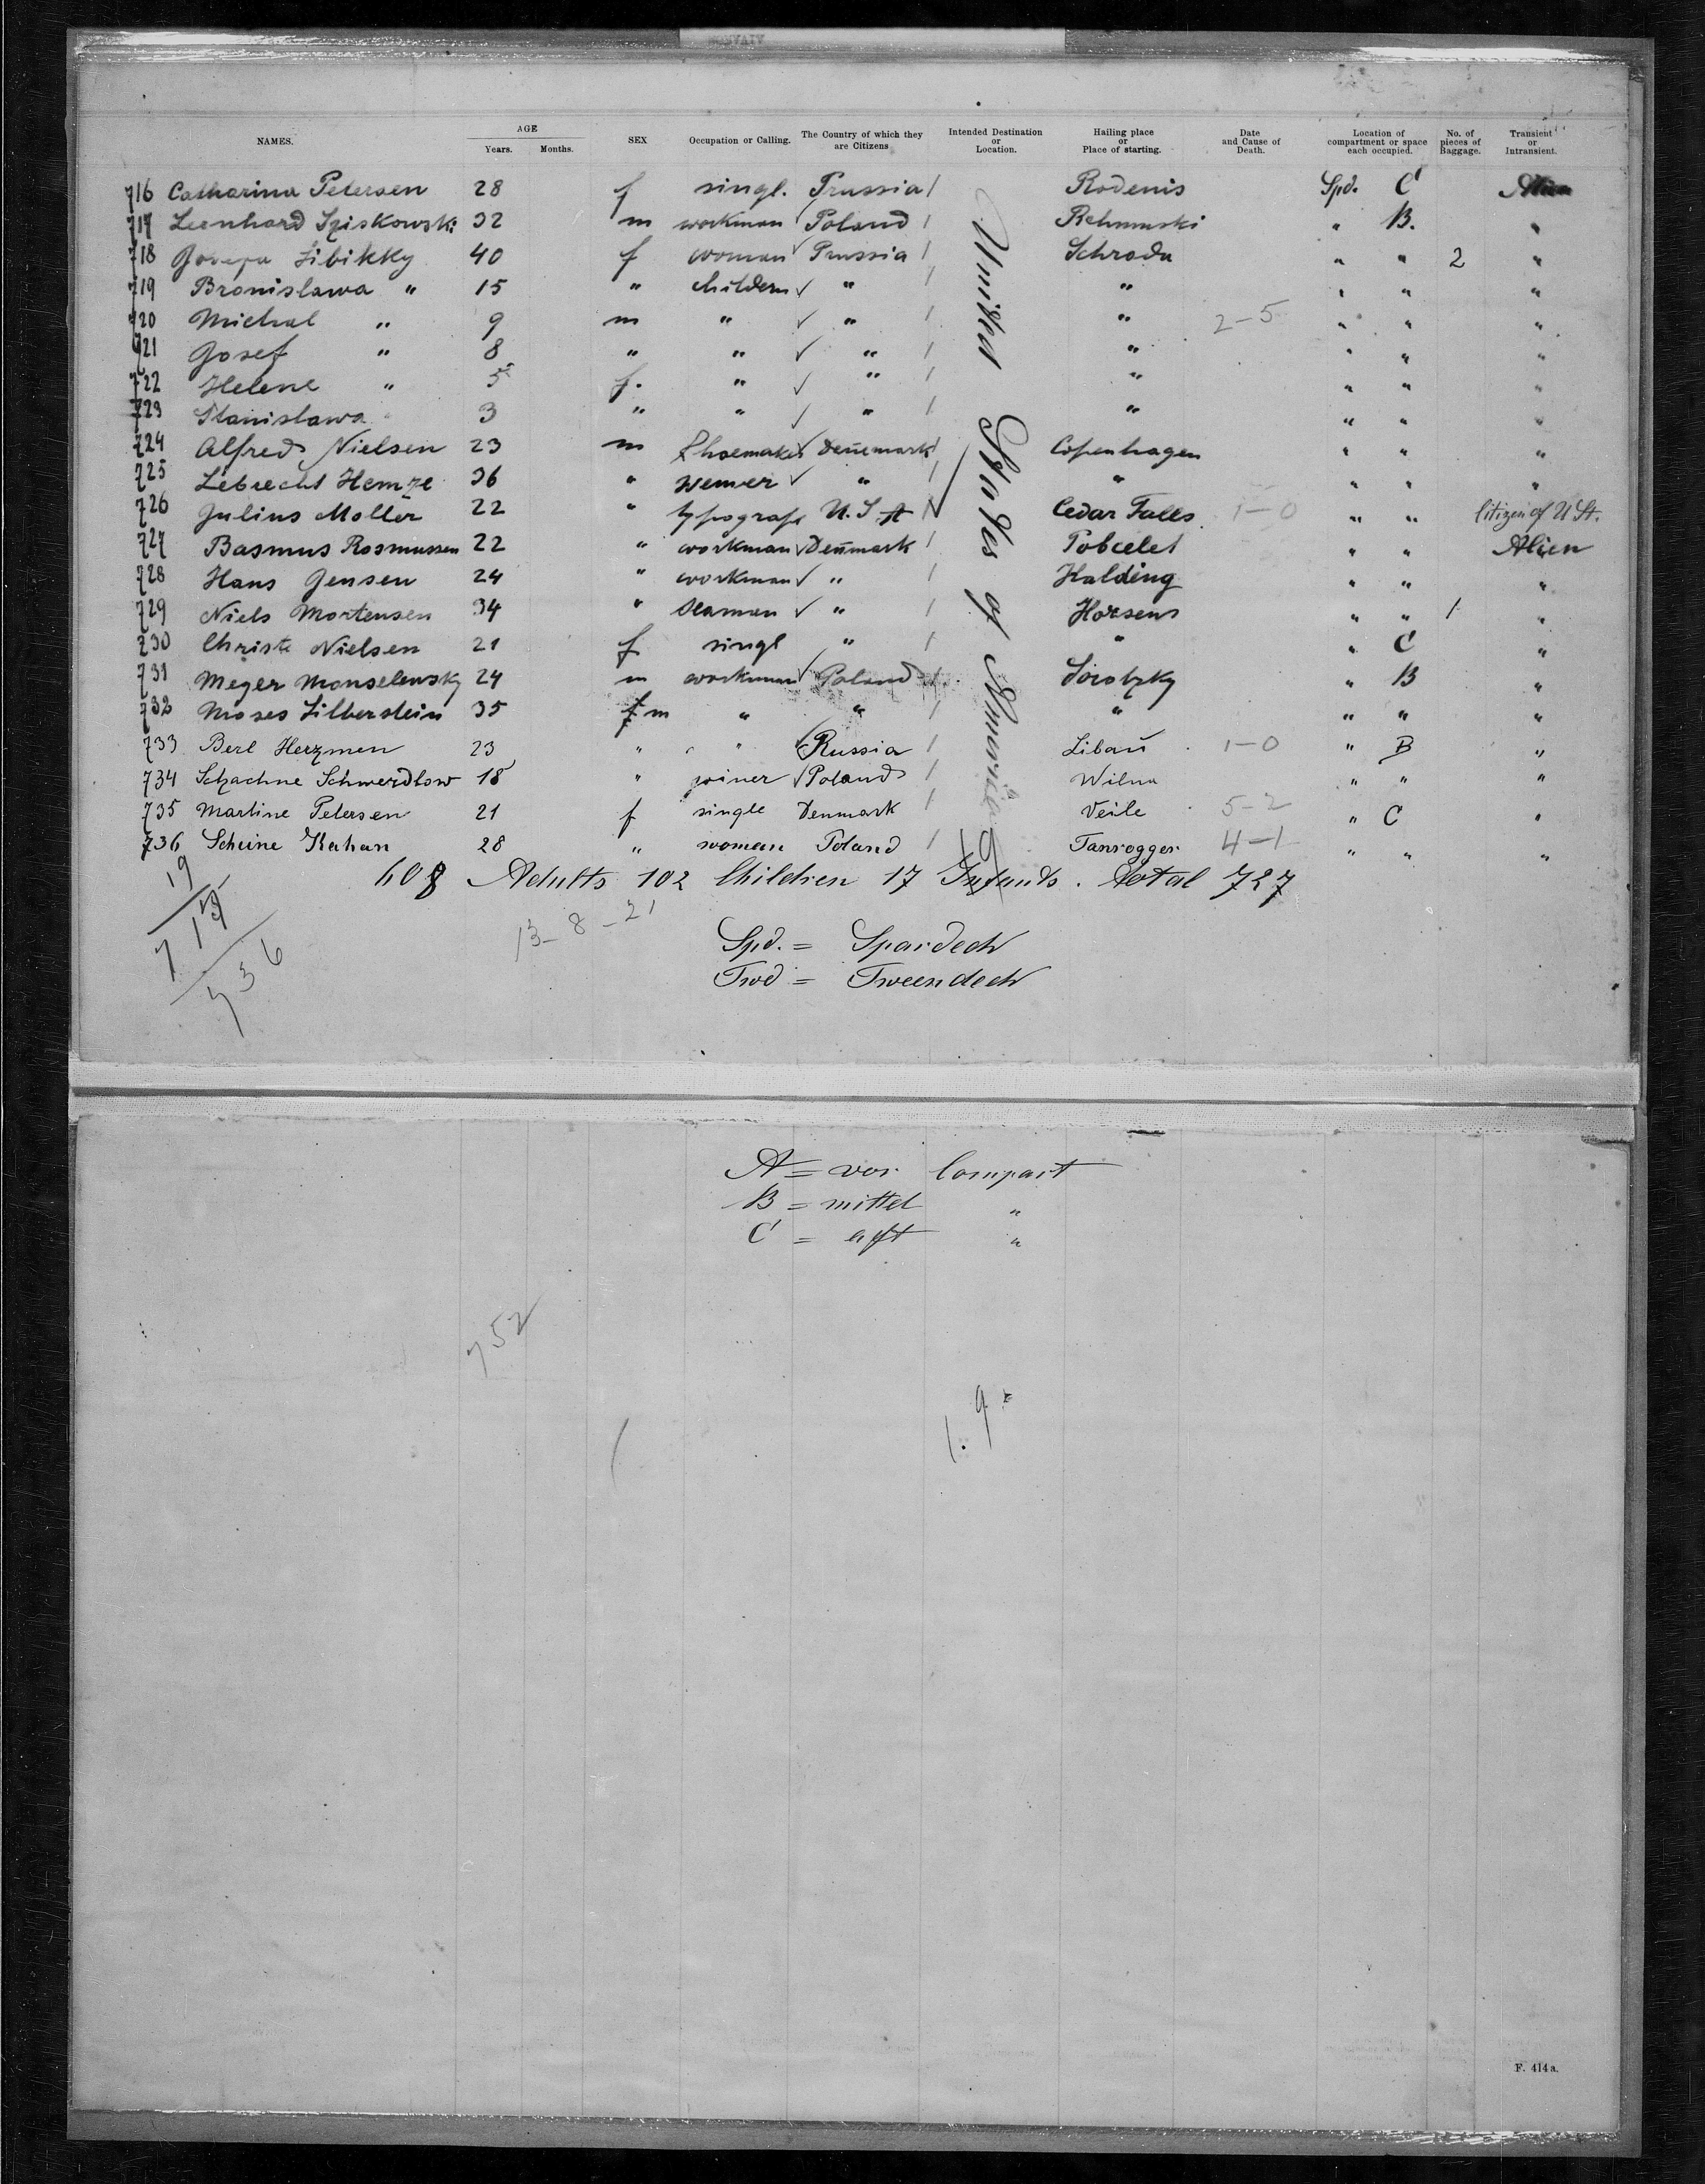 NAMES. AGE Years. Months. SEX Occupation or Calling. The Country of which they are Citizens Intended Destination or Location. Hailing place or Place of starting. Date and Cause of Death. Location of compartment or space each occupied. No. of pieces of Baggage. Transient or Intransient.
716 Catharina Petersen 28 f singl. Prussia / Rodenis Spd. C Alien
717 Leenhard Sziskowski 32 m workman Poland / " B. "
718 Zibikky 40 f woman Prussia / Schroda " " 2 "
719 Bronislawa " 15 " childern " / " " " "
720 Michal " 9 m " " / " 2-5 " " "
721 Josef " 8 " " " / " " " "
722 Helene " 5 f. " " / " " " "
723 Stanislawa " 3 " " " / " " " "
724 Alfred Nielsen 23 m shoemaker Denemark / Copenhagen " " "
725 Lebrecht Hemze 36 " wewer " / " " " "
726 Julius Moller 22 " typograf U.S.A Cedar Falls. 1-0 " " Citizen of U St.
727 Basmus Rosmussen 22 " workman Denmark / Pobcelet " " Alien
728 Hans Jensen 24 " workman " / Kalding " " "
729 Niels Mortensen 34 " seaman " / Horsens " " 1 "
730 Christe Nielsen 21 f singl " / " " C "
731 Meger Monselensky 24 m workman Poland / Sorotzky " B "
732 Moses Silberstein 35 f m " " / " " " "
733 Berl Herzmen 23 " " Russia / Libau 1-0 " B "
734 Schachne Schwerdlow 18 " joiner Poland / Wilna " " "
735 Martine Petersen 21 f single Denmark / Veile 5-2 " C "
736 Scheine Kahan 28 " woman Poland / Tanrogger 4-1 " " "
United States of America
19
608 Adults 102 Children 17 Infants. Total 727
19
717
736
13-8-21
Spd. = Spardeck
Twd = Tweendeck
A = vor Compart
B = mittel "
C = aft "
752
1.9
F. 414a.